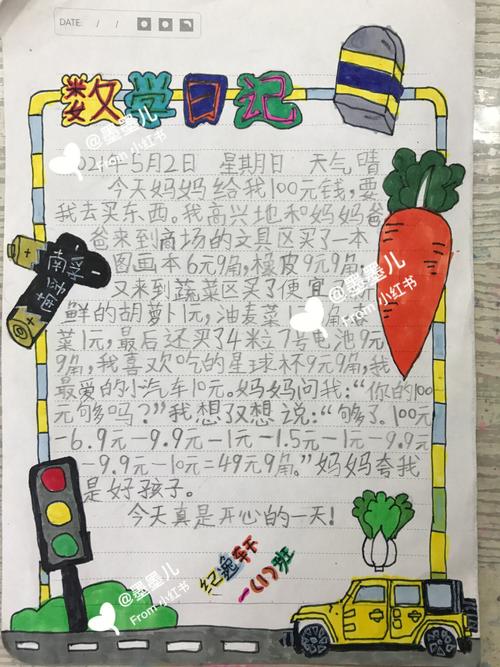 DATE: / /
数学日记
@墨墨儿
From 小红书
2021年5月2日 星期日 天气晴
今天妈妈给我100元钱,要
我去买东西。我高兴地和妈妈爸
爸来到商场的文具区买了一本
图画本6元9角,橡皮9元9角
又来到蔬菜区买了便宜
鲜的胡萝卜1元,油麦菜1
@墨墨儿
From 小红书
菜1元,最后还买了4粒7号电池9元
9角,我喜欢吃的星球杯9元9角,我
最爱的小汽车10元。妈妈问我:“你的100
元够吗?”我想了又想说:“够了。100元
-6.9元-9.9元-1元-1.5元-1元-9.9元
-9.9元-10元=49元9角。”妈妈夸我
是好孩子。
今天真是开心的一天!
一(1)班
@墨墨儿
From 小红书